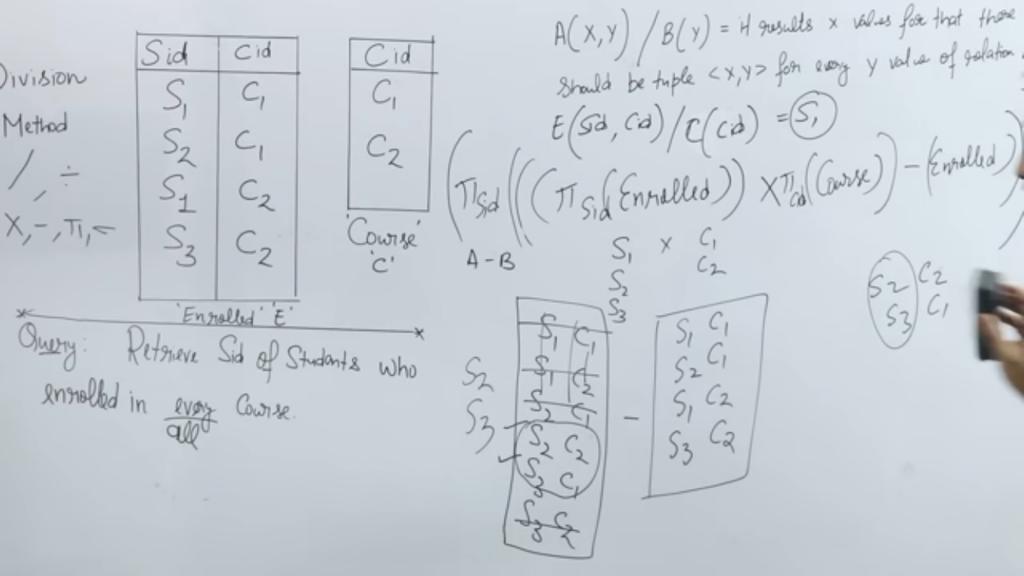 Division
Method
/ , ÷
X, -, π, -
Sid Cid
S1 C1
S2 C1
S1 C2
S3 C2
'Enrolled' 'E'
Cid
C1
C2
'Course'
'C'
Query: Retrieve Sid of Students who
enrolled in every Course.
all
A(X,Y) / B(Y) = It results x values for that there
should be tuple <X,Y> for every y value of relation
E(Sid, Cid) / C(Cid) = S1
(πSid (((πSid (Enrolled)) X πCid (Course)) - (Enrolled))
A-B
S1 × C1
S2 C2
S3
S2
S3
S1 C1
S1 C2
S2 C1
S2 C2
S3 C1
S3 C2
-
S1 C1
S2 C1
S1 C2
S3 C2
S2 C2
S3 C1